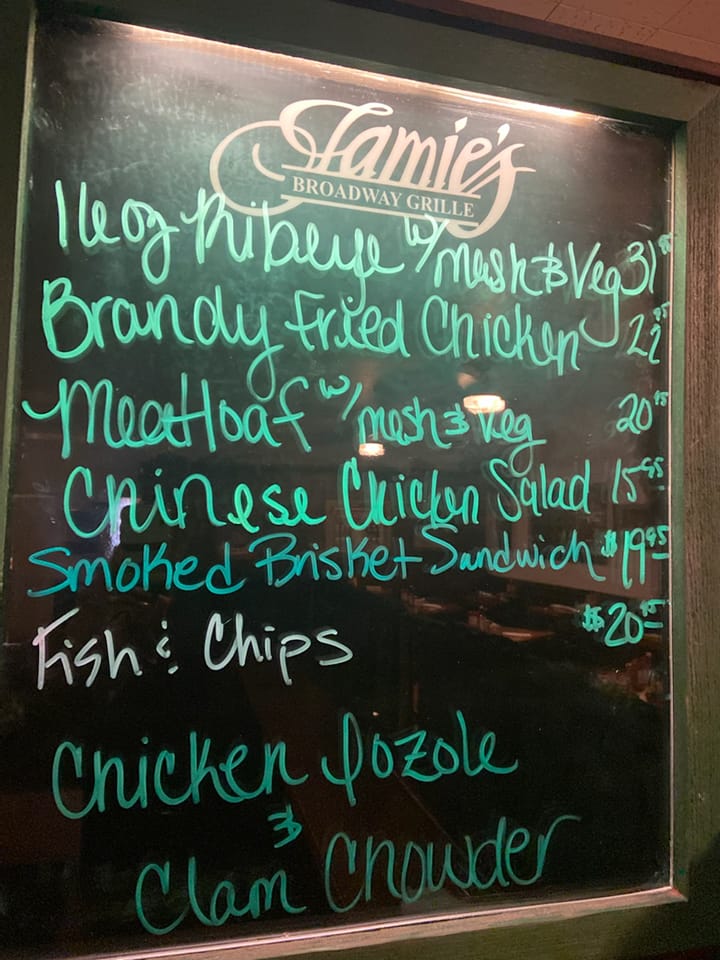 Jamie's
BROADWAY GRILLE
16oz Ribeye w/ mash & Veg 31
Brandy Fried Chicken 22 95
Meatloaf w/ mash & Veg 20 95
Chinese Chicken Salad 15 95
Smoked Brisket Sandwich $19 95
Fish & Chips $20 95
Chicken Pozole
&
Clam Chowder